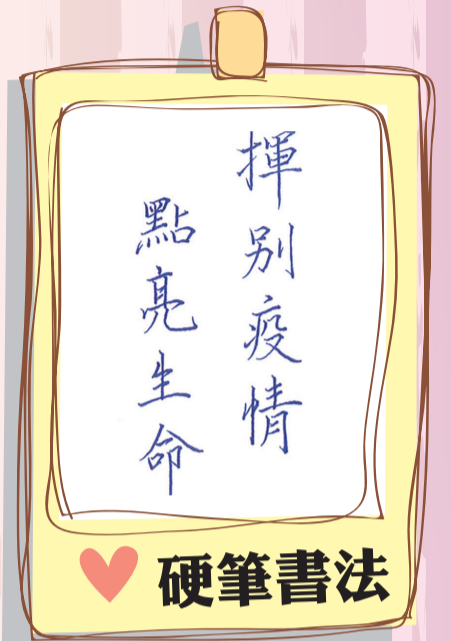 揮別疫情
點亮生命
硬筆書法